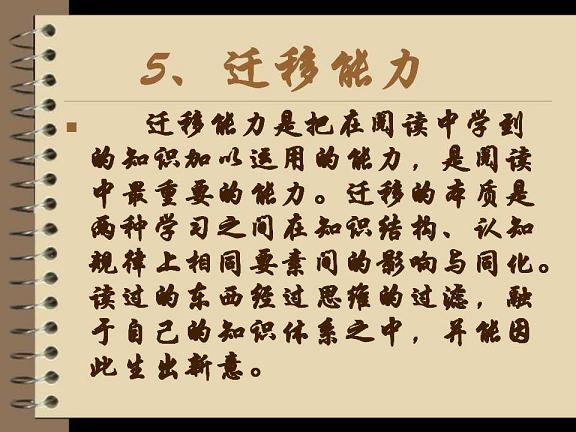 5、迁移能力
迁移能力是把在阅读中学到
的知识加以运用的能力，是阅读
中最重要的能力。迁移的本质是
两种学习之间在知识结构、认知
规律上相同要素间的影响与同化。
读过的东西经过思维的过滤，融
于自己的知识体系之中，并能因
此生出新意。